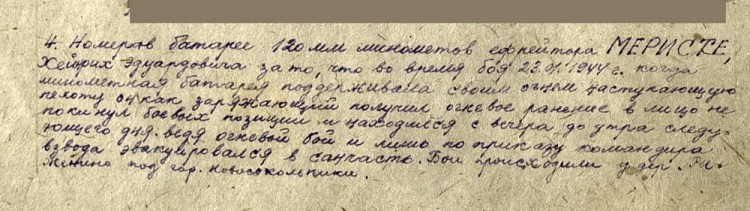 4. Номеров батарее 120 мм минометов ефрейтора МЕРИСТЕ,
Хейнрих Эдуардовича за то, что во время боя 23.01.1944 г. когда
минометная батарея поддерживала своим огнем наступающую
пехоту он как заряжающий получил огневое ранение в лицо не
покинул боевых позиций и находился с вечера до утра следу-
ющего дня ведя огневый бой и лишь по приказу командира
взвода эвакуировался в санчасть. Бои происходили у дер.
Менино под гор. Новосокольники.